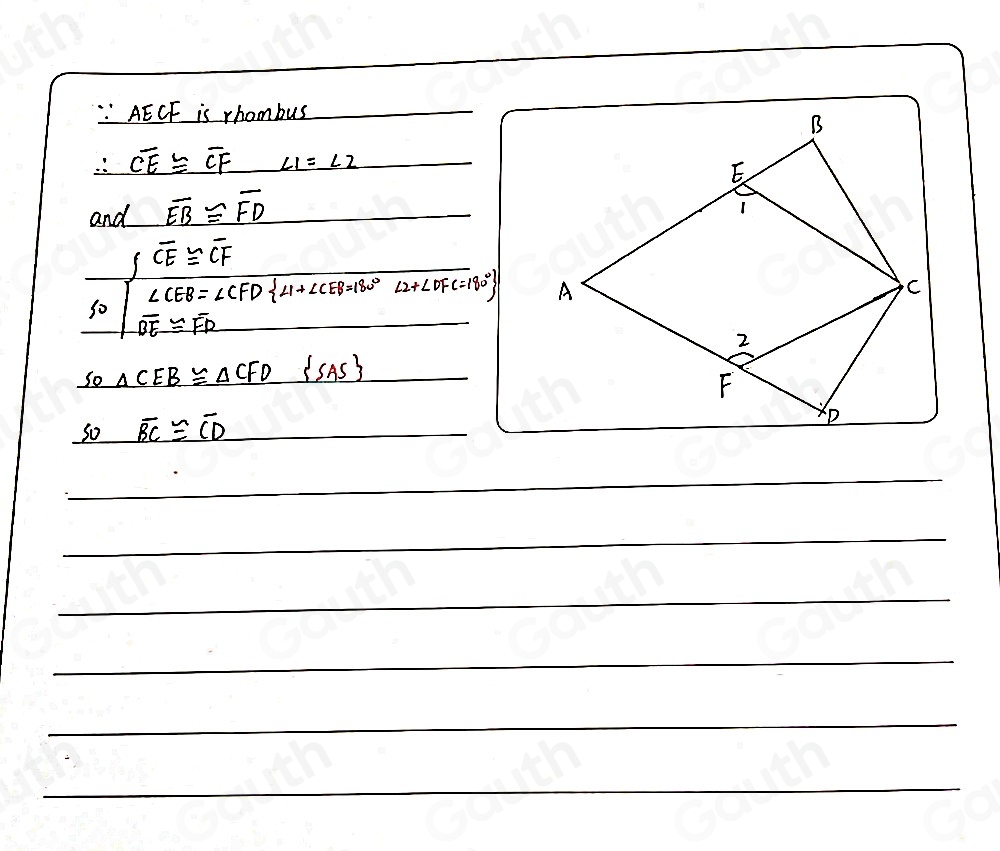 ∵ AECF is rhombus
∴ C̅E̅ ≅ C̅F̅ ∠1 = ∠2
and E̅B̅ ≅ F̅D̅
C̅E̅ ≅ C̅F̅
so { ∠CEB = ∠CFD {∠1+∠CEB=180° ∠2+∠DFC=180°}
B̅E̅ ≅ F̅D̅
so △CEB ≅ △CFD {SAS}
so B̅C̅ ≅ C̅D̅
B
E
1
A
C
2
F
D
Gauth